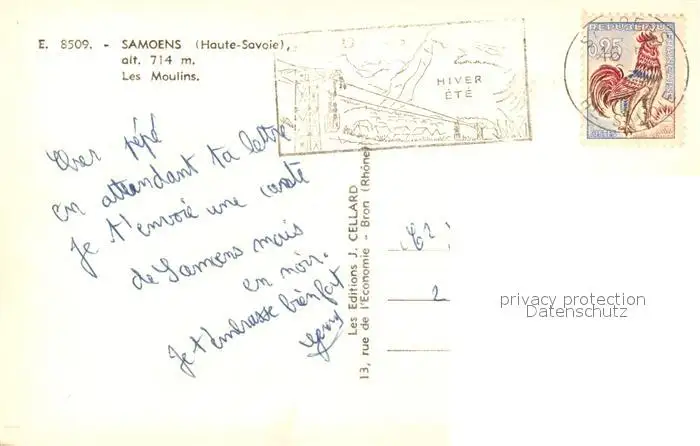 E. 8509. - SAMOENS (Haute-Savoie),
alt. 714 m.
Les Moulins.
HIVER
ÉTÉ
REPUBLIQUE
FRANÇAISE
0,25
POSTES
Cher pépé
en attendant ta lettre
Je t'envoie une carte
de Samoens mais
en noir.
Je t'embrasse bien fort
Les Editions J. CELLARD
13, rue de l'Economie - Bron (Rhône)
2
privacy protection
Datenschutz